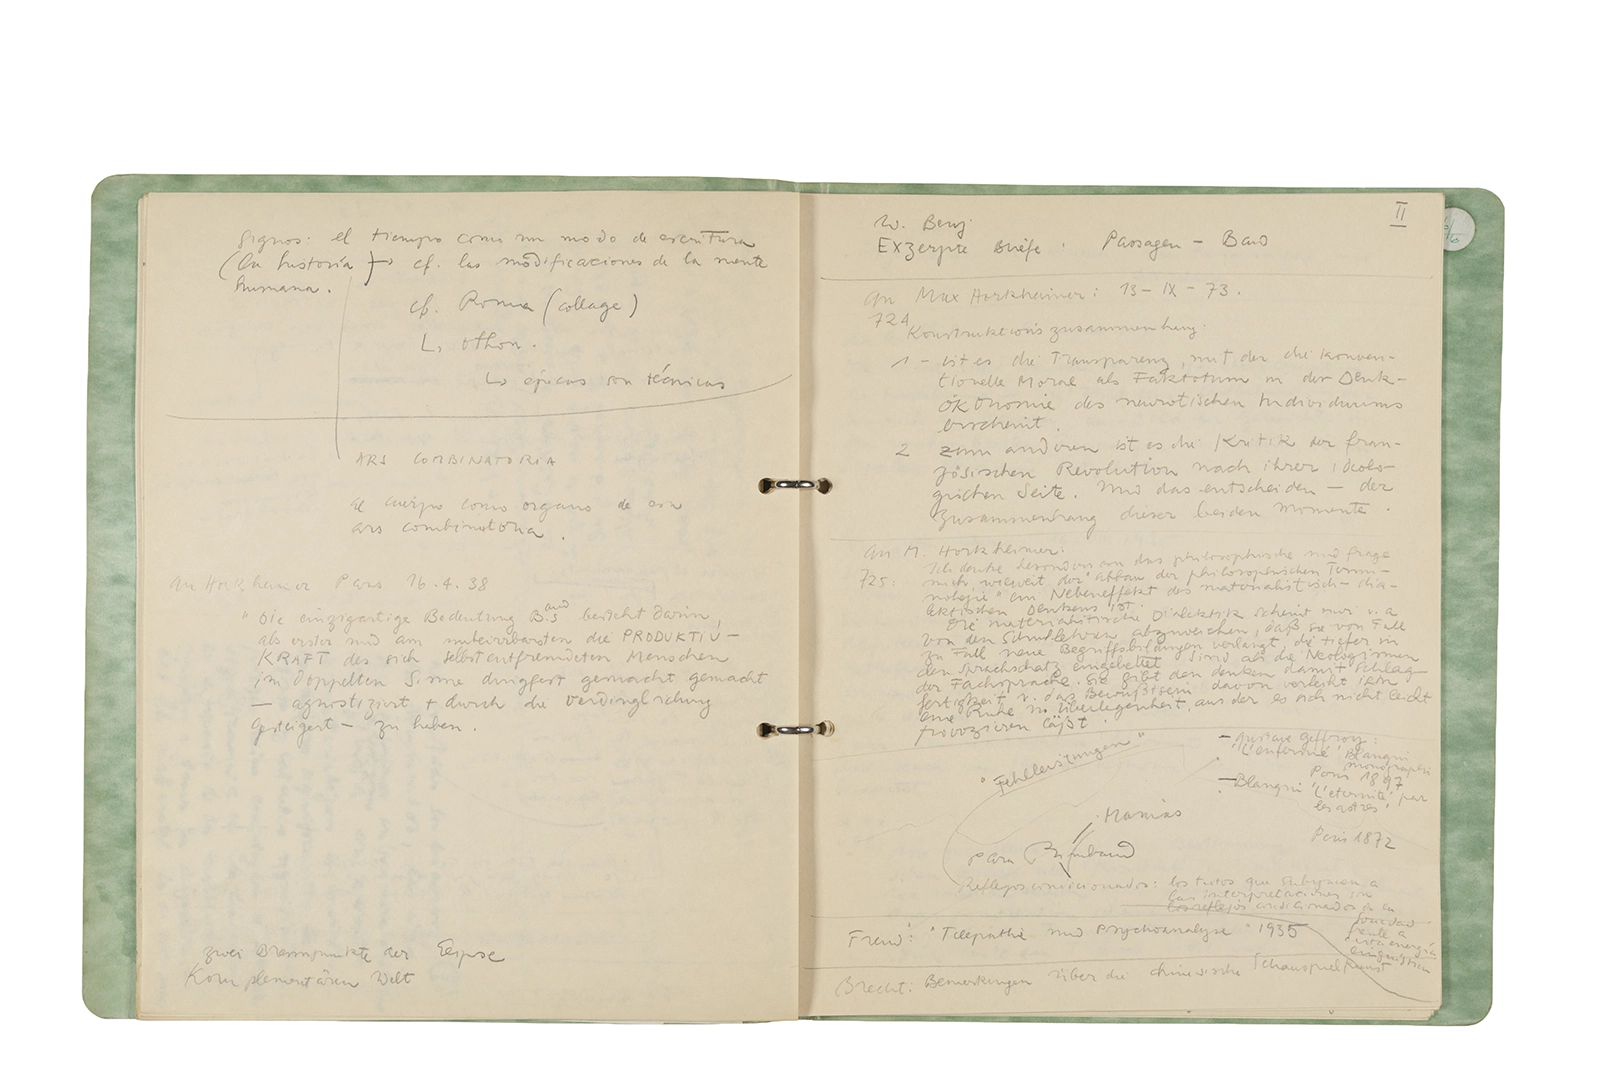 Signos: el tiempo como un modo de escritura
(la historia) → cf. las modificaciones de la mente
humana.
cf. Roma (collage)
L, Othon.
↳ épocas son técnicas
ARS COMBINATORIA
el cuerpo como organo de esa
ars combinatoria.
An Horkheimer Paris 16.4.38
"Die einzigartige Bedeutung B.s besteht darin,
als erster und am unbeirrbarsten die PRODUKTIV-
KRAFT des sich selbstentfremdeten Menschen
im doppelten Sinne dingfest gemacht gemacht
— agnostiziert + durch die Verdinglichung
gesteigert — zu haben.
zwei Brennpunkte der Elipse
Komplementären Welt
II
W. Benj
Exzerpte Briefe: Passagen - Band
An Max Horkheimer: 13-IX-73.
724
Konstruktionszusammenhang:
1 - ist es die Transparenz, mit der die konven-
tionelle Moral als Faktotum in der Denk-
ökonomie des neurotischen Individuums
erscheint.
2 zum anderen ist es die Kritik der fran-
zösischen Revolution nach ihrer ideolo-
gischen Seite. Und das entscheiden - der
Zusammenhang dieser beiden Momente.
An M. Horkheimer:
Ich denke besonders an das philosophische und frage
725: mich, wieweit der "Abbau der philosophischen Termi-
nologie" ein Nebeneffekt des materialistisch-dia-
lektischen Denkens ist.
Die materialistische Dialektik scheint mir u.a
von den Schullehren abzuweichen, daß sie von Fall
zu Fall neue Begriffsbildungen verlangt, die tiefer in
den Sprachschatz eingebettet sind als die Neologismen
der Fachsprache. Sie gibt den denken damit Schlag-
fertigkeit u. das Bewußtsein davon verleiht ihm
eine Ruhe u. Überlegenheit, aus der es sich nicht leicht
provozieren läßt.
"Fehlleistungen"
- Gustave Geffroy:
'L'enfermé' Blanqui
monographie
Paris 1897
- Blanqui 'L'eternité par
les astres'
Paris 1872
Manías
para Rimbaud
Reflejos condicionados: los que a
las interpretaciones son
los reflejos condicionados de la
Sociedad
frente a
esta energía
Freud: "Telepathie und Psychoanalyse" 1935
Brecht: Bemerkungen über die chinesische Schauspielkunst